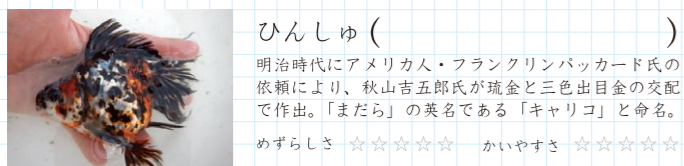 ひんしゅ(　　　　　　　　　　)
明治時代にアメリカ人・フランクリンパッカード氏の
依頼により、秋山吉五郎氏が琉金と三色出目金の交配
で作出。「まだら」の英名である「キャリコ」と命名。
めずらしさ ☆☆☆☆☆　かいやすさ ☆☆☆☆☆